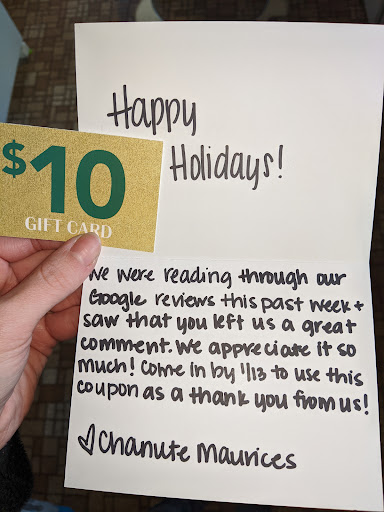 Happy
Holidays!
$10
GIFT CARD
We were reading through our
Google reviews this past week +
saw that you left us a great
comment. We appreciate it so
much! Come in by 1/13 to use this
coupon as a thank you from us!
♡ Chanute Maurices